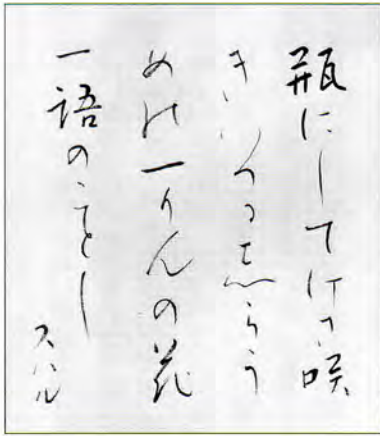 瓶にしてけさ咲
きいつる志らう
めの一りんの花
一語のことし
スハル